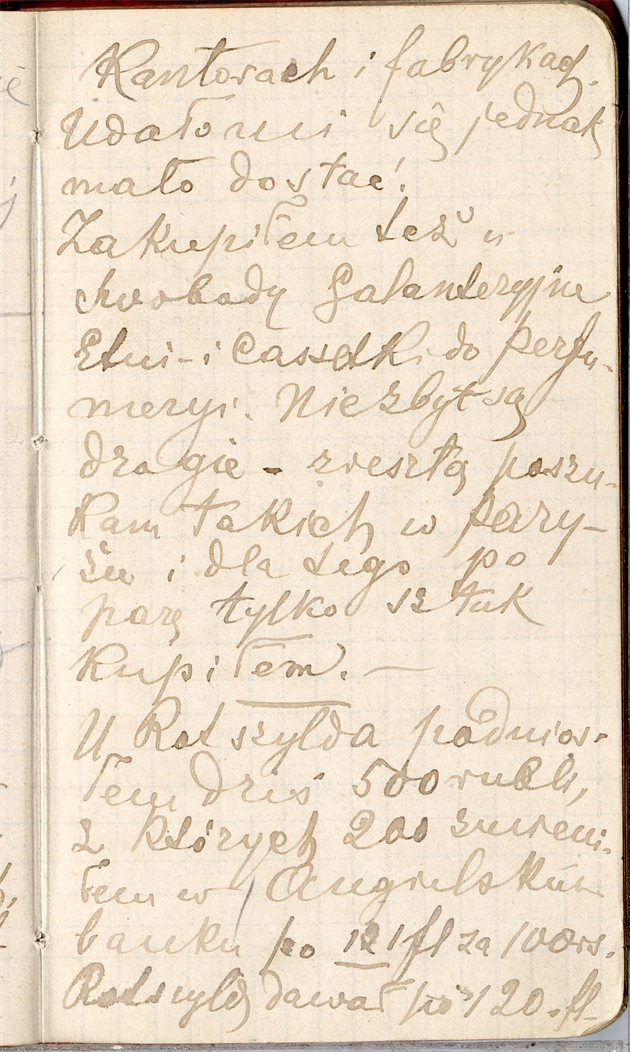 Kantorach i fabrykach.
Udało mi się jednak
mało dostać!
Zakupiłem też u
Swobody galanteryjne
Etui - i Cassetki do perfu-
meryi. Nie zbyt są
drogie - zresztą poszu-
kam takich w Pary-
żu i dla tego po
parę tylko sztuk
kupiłem. —
U Rotszylda podnios-
łem dziś 500 rubli,
z których 200 zmieni-
łem w Angielskim
banku po 121 fl za 100 rs.
Rotszyld dawał po 120. fl